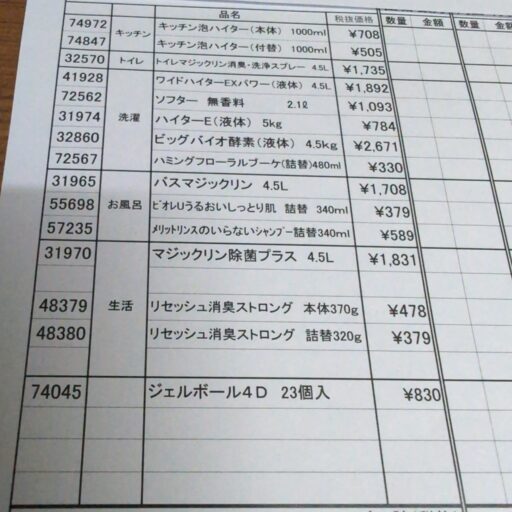 品名 税抜価格 数量 金額 数量 金額
74972 キッチン キッチン泡ハイター(本体) 1000ml ¥708
74847 キッチン泡ハイター(付替) 1000ml ¥505
32570 トイレ トイレマジックリン消臭・洗浄スプレー 4.5L ¥1,735
41928 洗濯 ワイドハイターEXパワー(液体) 4.5L ¥1,892
72562 ソフター 無香料 2.1ℓ ¥1,093
31974 ハイターE(液体) 5kg ¥784
32860 ビッグバイオ酵素(液体) 4.5kg ¥2,671
72567 ハミングフローラルブーケ(詰替)480ml ¥330
31965 お風呂 バスマジックリン 4.5L ¥1,708
55698 ビオレUうるおいしっとり肌 詰替 340ml ¥379
57235 メリットリンスのいらないシャンプー詰替340ml ¥589
31970 生活 マジックリン除菌プラス 4.5L ¥1,831
48379 リセッシュ消臭ストロング 本体370g ¥478
48380 リセッシュ消臭ストロング 詰替320g ¥379
74045 ジェルボール4D 23個入 ¥830